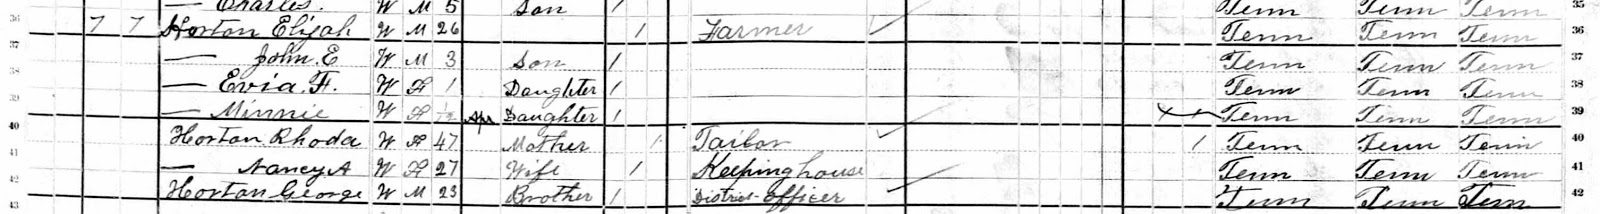 — Charles. W M 5 Son / Tenn Tenn Tenn 35
36 7 7 Horton Elijah W M 26 / Farmer Tenn Tenn Tenn 36
37 — John. E W M 3 Son / Tenn Tenn Tenn 37
38 — Evia. F. W F 1 Daughter / Tenn Tenn Tenn 38
39 — Minnie W F Apr Daughter / Tenn Tenn Tenn 39
40 Horton Rhoda W F 47 Mother / Tailor / Tenn Tenn Tenn 40
41 — Nancy A W F 27 Wife / Keeping house Tenn Tenn Tenn 41
42 Horton George W M 23 Brother / District officer Tenn Tenn Tenn 42
43